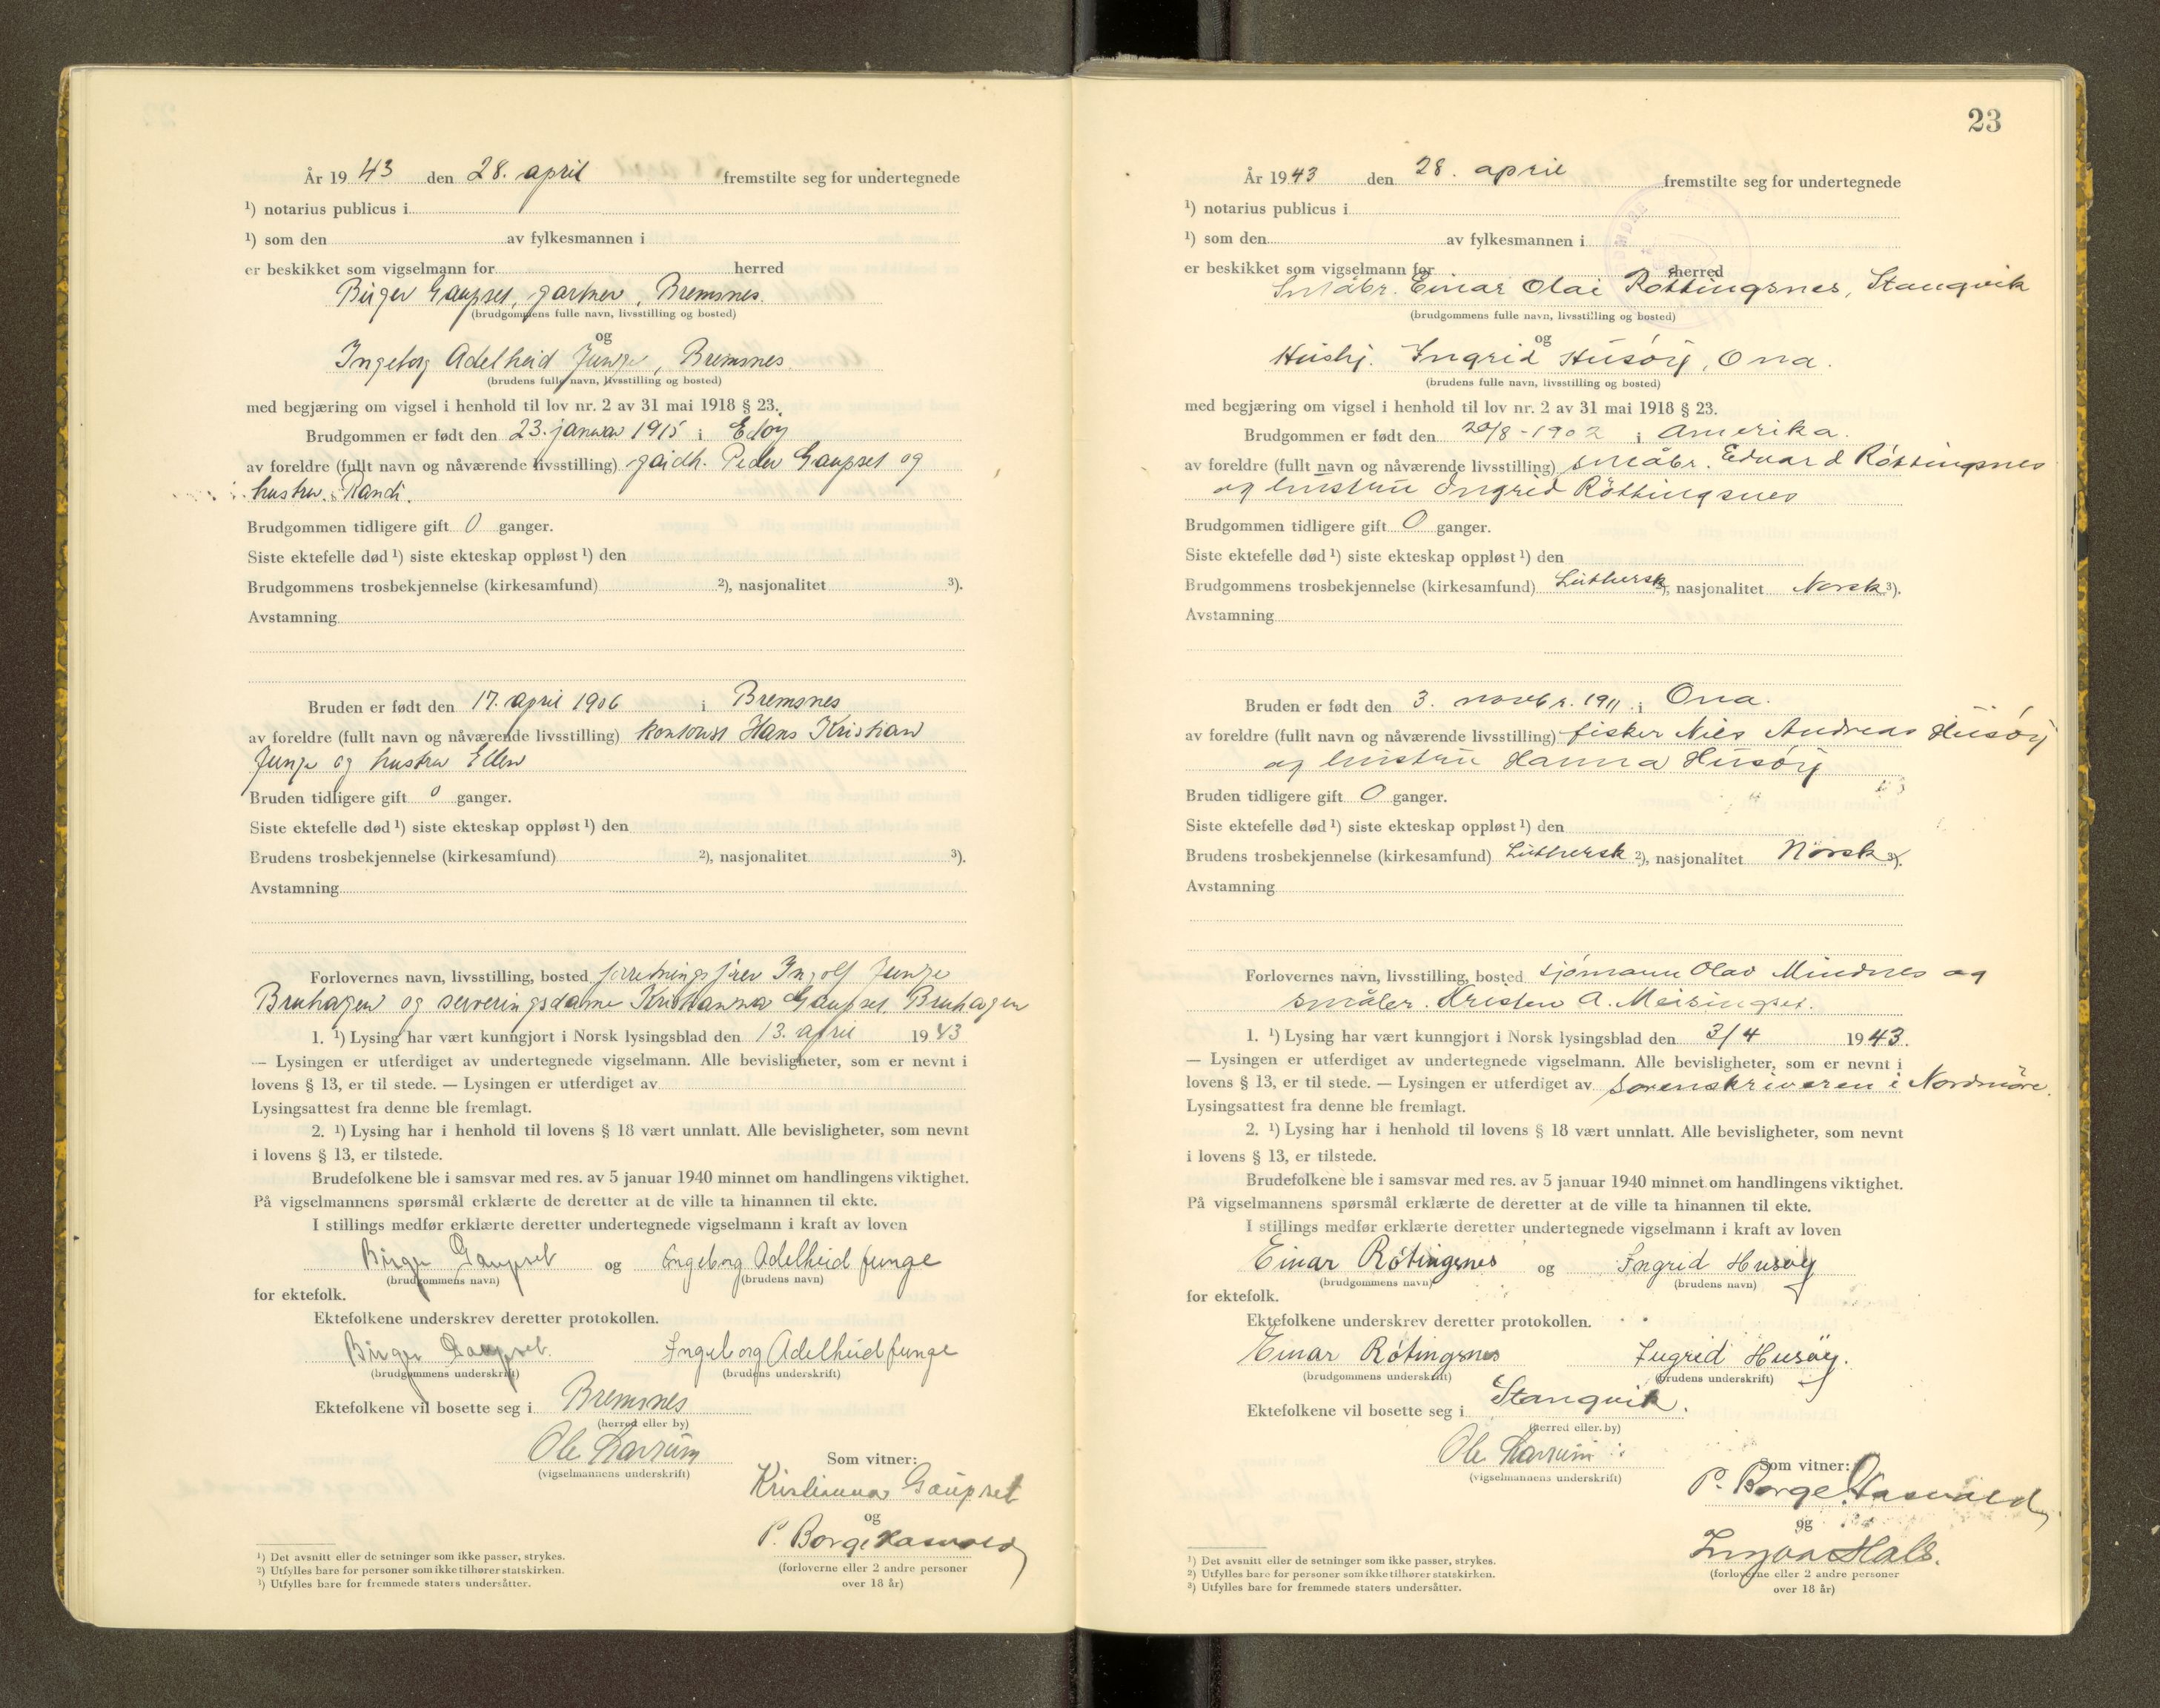 År 1943 den 28. april fremstilte seg for undertegnede
¹) notarius publicus i
¹) som den av fylkesmannen i
er beskikket som vigselmann for herred
Birger Gaupset, gartner, Bremsnes.
(brudgommens fulle navn, livsstilling og bosted)
og
Ingeborg Adelheid Junge, Bremsnes
(brudens fulle navn, livsstilling og bosted)
med begjæring om vigsel i henhold til lov nr. 2 av 31 mai 1918 § 23.
Brudgommen er født den 23. januar 1915 i Edøy
av foreldre (fullt navn og nåværende livsstilling) gårdb. Peder Gaupset og
hustru Randi.
Brudgommen tidligere gift 0 ganger.
Siste ektefelle død ¹) siste ekteskap oppløst ¹) den
Brudgommens trosbekjennelse (kirkesamfund) ²), nasjonalitet ³).
Avstamning
Bruden er født den 17. april 1906 i Bremsnes
av foreldre (fullt navn og nåværende livsstilling) kontorist Hans Kristian
Junge og hustru Ellen
Bruden tidligere gift 0 ganger.
Siste ektefelle død ¹) siste ekteskap oppløst ¹) den
Brudens trosbekjennelse (kirkesamfund) ²), nasjonalitet ³).
Avstamning
Forlovernes navn, livsstilling, bosted forretningsfører Ingolf Junge
Bruhagen og serveringsdame Kristianna Gaupset, Bruhagen
1. ¹) Lysing har vært kunngjort i Norsk lysingsblad den 13. april 1943
— Lysingen er utferdiget av undertegnede vigselmann. Alle bevisligheter, som er nevnt i
lovens § 13, er til stede. — Lysingen er utferdiget av
Lysingsattest fra denne ble fremlagt.
2. ¹) Lysing har i henhold til lovens § 18 vært unnlatt. Alle bevisligheter, som nevnt
i lovens § 13, er tilstede.
Brudefolkene ble i samsvar med res. av 5 januar 1940 minnet om handlingens viktighet.
På vigselmannens spørsmål erklærte de deretter at de ville ta hinannen til ekte.
I stillings medfør erklærte deretter undertegnede vigselmann i kraft av loven
Birger Gaupset og Ingeborg Adelheid Junge
(brudgommens navn) (brudens navn)
for ektefolk.
Ektefolkene underskrev deretter protokollen.
Birger Gaupset. Ingeborg Adelheid Junge
(brudgommens underskrift) (brudens underskrift)
Ektefolkene vil bosette seg i Bremsnes
(herred eller by)
Ole Larsum
(vigselmannens underskrift)
Som vitner:
Kristianna Gaupset
og
P. Borge Hasvold
(forloverne eller 2 andre personer
over 18 år)
¹) Det avsnitt eller de setninger som ikke passer, strykes.
²) Utfylles bare for personer som ikke tilhører statskirken.
³) Utfylles bare for fremmede staters undersåtter.
23
År 1943 den 28. april fremstilte seg for undertegnede
¹) notarius publicus i
¹) som den av fylkesmannen i
er beskikket som vigselmann for herred
Småbr. Einar Olai Røttingsnes, Stangvik
(brudgommens fulle navn, livsstilling og bosted)
og
Hushj. Ingrid Husøy, Ona.
(brudens fulle navn, livsstilling og bosted)
med begjæring om vigsel i henhold til lov nr. 2 av 31 mai 1918 § 23.
Brudgommen er født den 20/8-1902 i Amerika.
av foreldre (fullt navn og nåværende livsstilling) småbr. Edvard Røttingsnes
og hustru Ingrid Røttingsnes
Brudgommen tidligere gift 0 ganger.
Siste ektefelle død ¹) siste ekteskap oppløst ¹) den
Brudgommens trosbekjennelse (kirkesamfund) Luthersk ²), nasjonalitet Norsk ³).
Avstamning
Bruden er født den 3. novbr. 1911 i Ona.
av foreldre (fullt navn og nåværende livsstilling) fisker Nils Andreas Husøy
og hustru Hanna Husøy
Bruden tidligere gift 0 ganger.
Siste ektefelle død ¹) siste ekteskap oppløst ¹) den
Brudens trosbekjennelse (kirkesamfund) Luthersk ²), nasjonalitet Norsk ³).
Avstamning
Forlovernes navn, livsstilling, bosted sjømann Olav Mindnes og
småbr. Kristen A. Meisingset.
1. ¹) Lysing har vært kunngjort i Norsk lysingsblad den 3/4 1943.
— Lysingen er utferdiget av undertegnede vigselmann. Alle bevisligheter, som er nevnt i
lovens § 13, er til stede. — Lysingen er utferdiget av sorenskriveren i Nordmøre.
Lysingsattest fra denne ble fremlagt.
2. ¹) Lysing har i henhold til lovens § 18 vært unnlatt. Alle bevisligheter, som nevnt
i lovens § 13, er tilstede.
Brudefolkene ble i samsvar med res. av 5 januar 1940 minnet om handlingens viktighet.
På vigselmannens spørsmål erklærte de deretter at de ville ta hinannen til ekte.
I stillings medfør erklærte deretter undertegnede vigselmann i kraft av loven
Einar Røtingsnes og Ingrid Husøy
(brudgommens navn) (brudens navn)
for ektefolk.
Ektefolkene underskrev deretter protokollen.
Einar Røtingsnes Ingrid Husøy.
(brudgommens underskrift) (brudens underskrift)
Ektefolkene vil bosette seg i Stangvik.
(herred eller by)
Ole Larsum
(vigselmannens underskrift)
Som vitner:
P. Borge Hasvold
og
Yngvar Hals.
(forloverne eller 2 andre personer
over 18 år)
¹) Det avsnitt eller de setninger som ikke passer, strykes.
²) Utfylles bare for personer som ikke tilhører statskirken.
³) Utfylles bare for fremmede staters undersåtter.